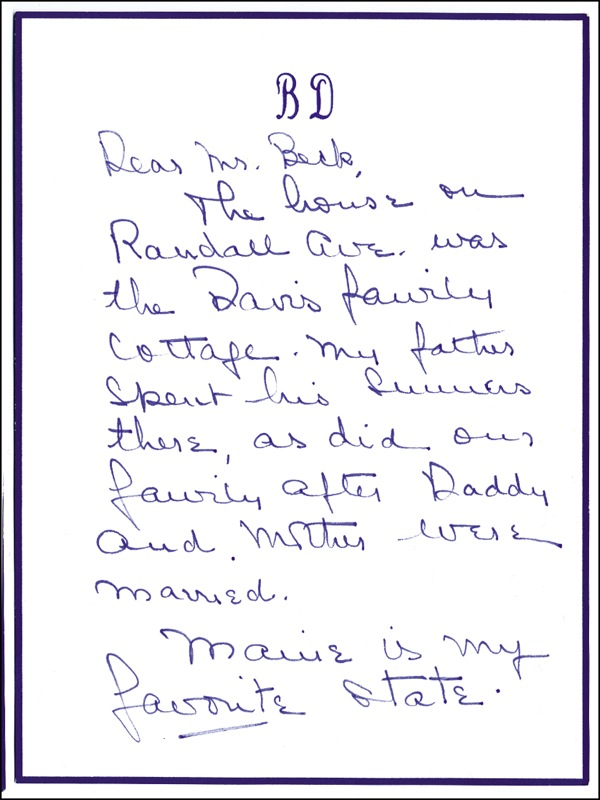 BD
Dear Mr. Beck,
The house on
Randall Ave. was
the Davis family
Cottage. My father
spent his Summers
there, as did our
family after Daddy
and Mother were
married.
Maine is my
favorite State.